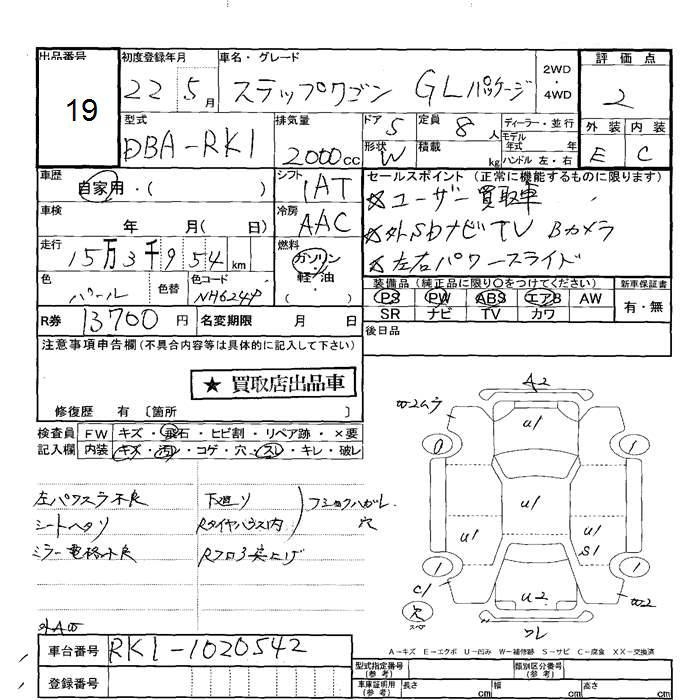 出品番号 初度登録年月 車名・グレード 2WD・4WD 評価点
19
22 5月 ステップワゴン GLパッケージ 2
型式 排気量 ドア 5 定員 8人 ディーラー・並行 外装 内装
DBA-RK1 2000cc 形状 W 積載 kg モデル年式 年 ハンドル 左・右 E C
車歴 シフト セールスポイント (正常に機能するものに限ります)
自家用・( ) IAT ☆ユーザー買取車
車検 年 月( 日) 冷房 AAC ☆外SDナビTV Bカメラ
走行 15万3千954km 燃料 ガソリン・軽油・( ) ☆左右パワースライド
色 パール 色替 色コード NH624P 装備品 (純正品に限り○をつけてください) 新車保証書
PS PW ABS エアB AW 有・無
SR ナビ TV カワ
R券 13700円 名変期限 月 日 後日品
注意事項申告欄(不具合内容等は具体的に記入して下さい)
★ 買取店出品車
修復歴 有〔箇所 〕
検査員記入欄 FW キズ・飛石・ヒビ割・リペア跡・×要
内装 キズ・汚レ・コゲ・穴・スレ・キレ・破レ
左パワスラ不良 下廻り
シートヘタリ Rタイヤハウス内
ミラー電格不良 Rフロア突上げ
A2
W2ムラ U1
0 1
U1
U1 U1
S1
1 1
C1 U2 W2
欠
スペア ワレ
外AW
車台番号 RK1-1020542
登録番号
A－キズ E－エクボ U－凹み W－補修跡 S－サビ C－腐食 XX－交換済
型式指定番号(参考) 類別区分番号(参考)
車庫証明用(参考) 長さ cm 幅 cm 高さ cm